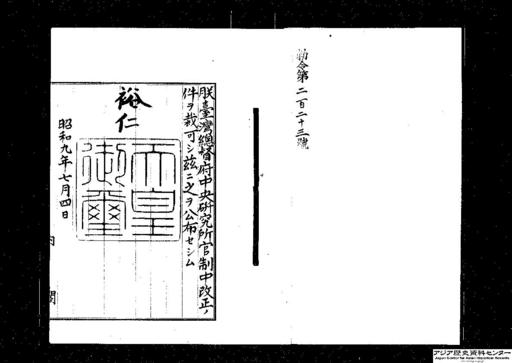 勅令第二百二十三號
朕臺灣總督府中央研究所官制中改正ノ
件ヲ裁可シ茲ニ之ヲ公布セシム
裕仁
天皇御璽
昭和九年七月四日
内閣
アジア歴史資料センター
Japan Center for Asian Historical Records